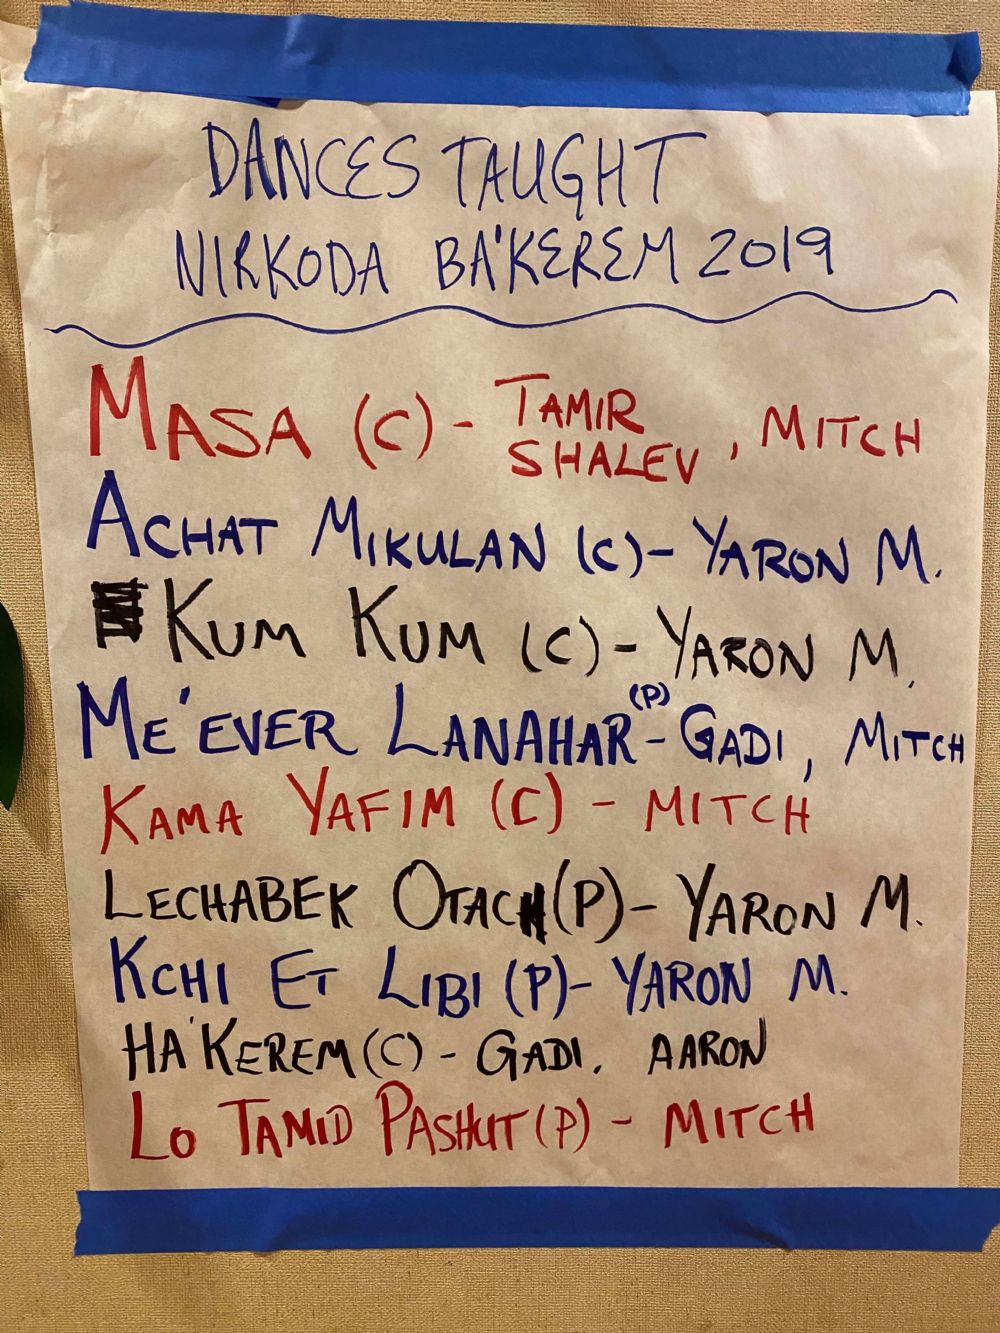 DANCES TAUGHT
NIRKODA BA'KEREM 2019
MASA (C) - TAMIR SHALEV, MITCH
ACHAT MIKULAN (C) - YARON M.
KUM KUM (C) - YARON M.
ME'EVER LANAHAR (P) - GADI, MITCH
KAMA YAFIM (C) - MITCH
LECHABEK OTACH (P) - YARON M.
KCHI ET LIBI (P) - YARON M.
HA'KEREM (C) - GADI, AARON
LO TAMID PASHUT (P) - MITCH